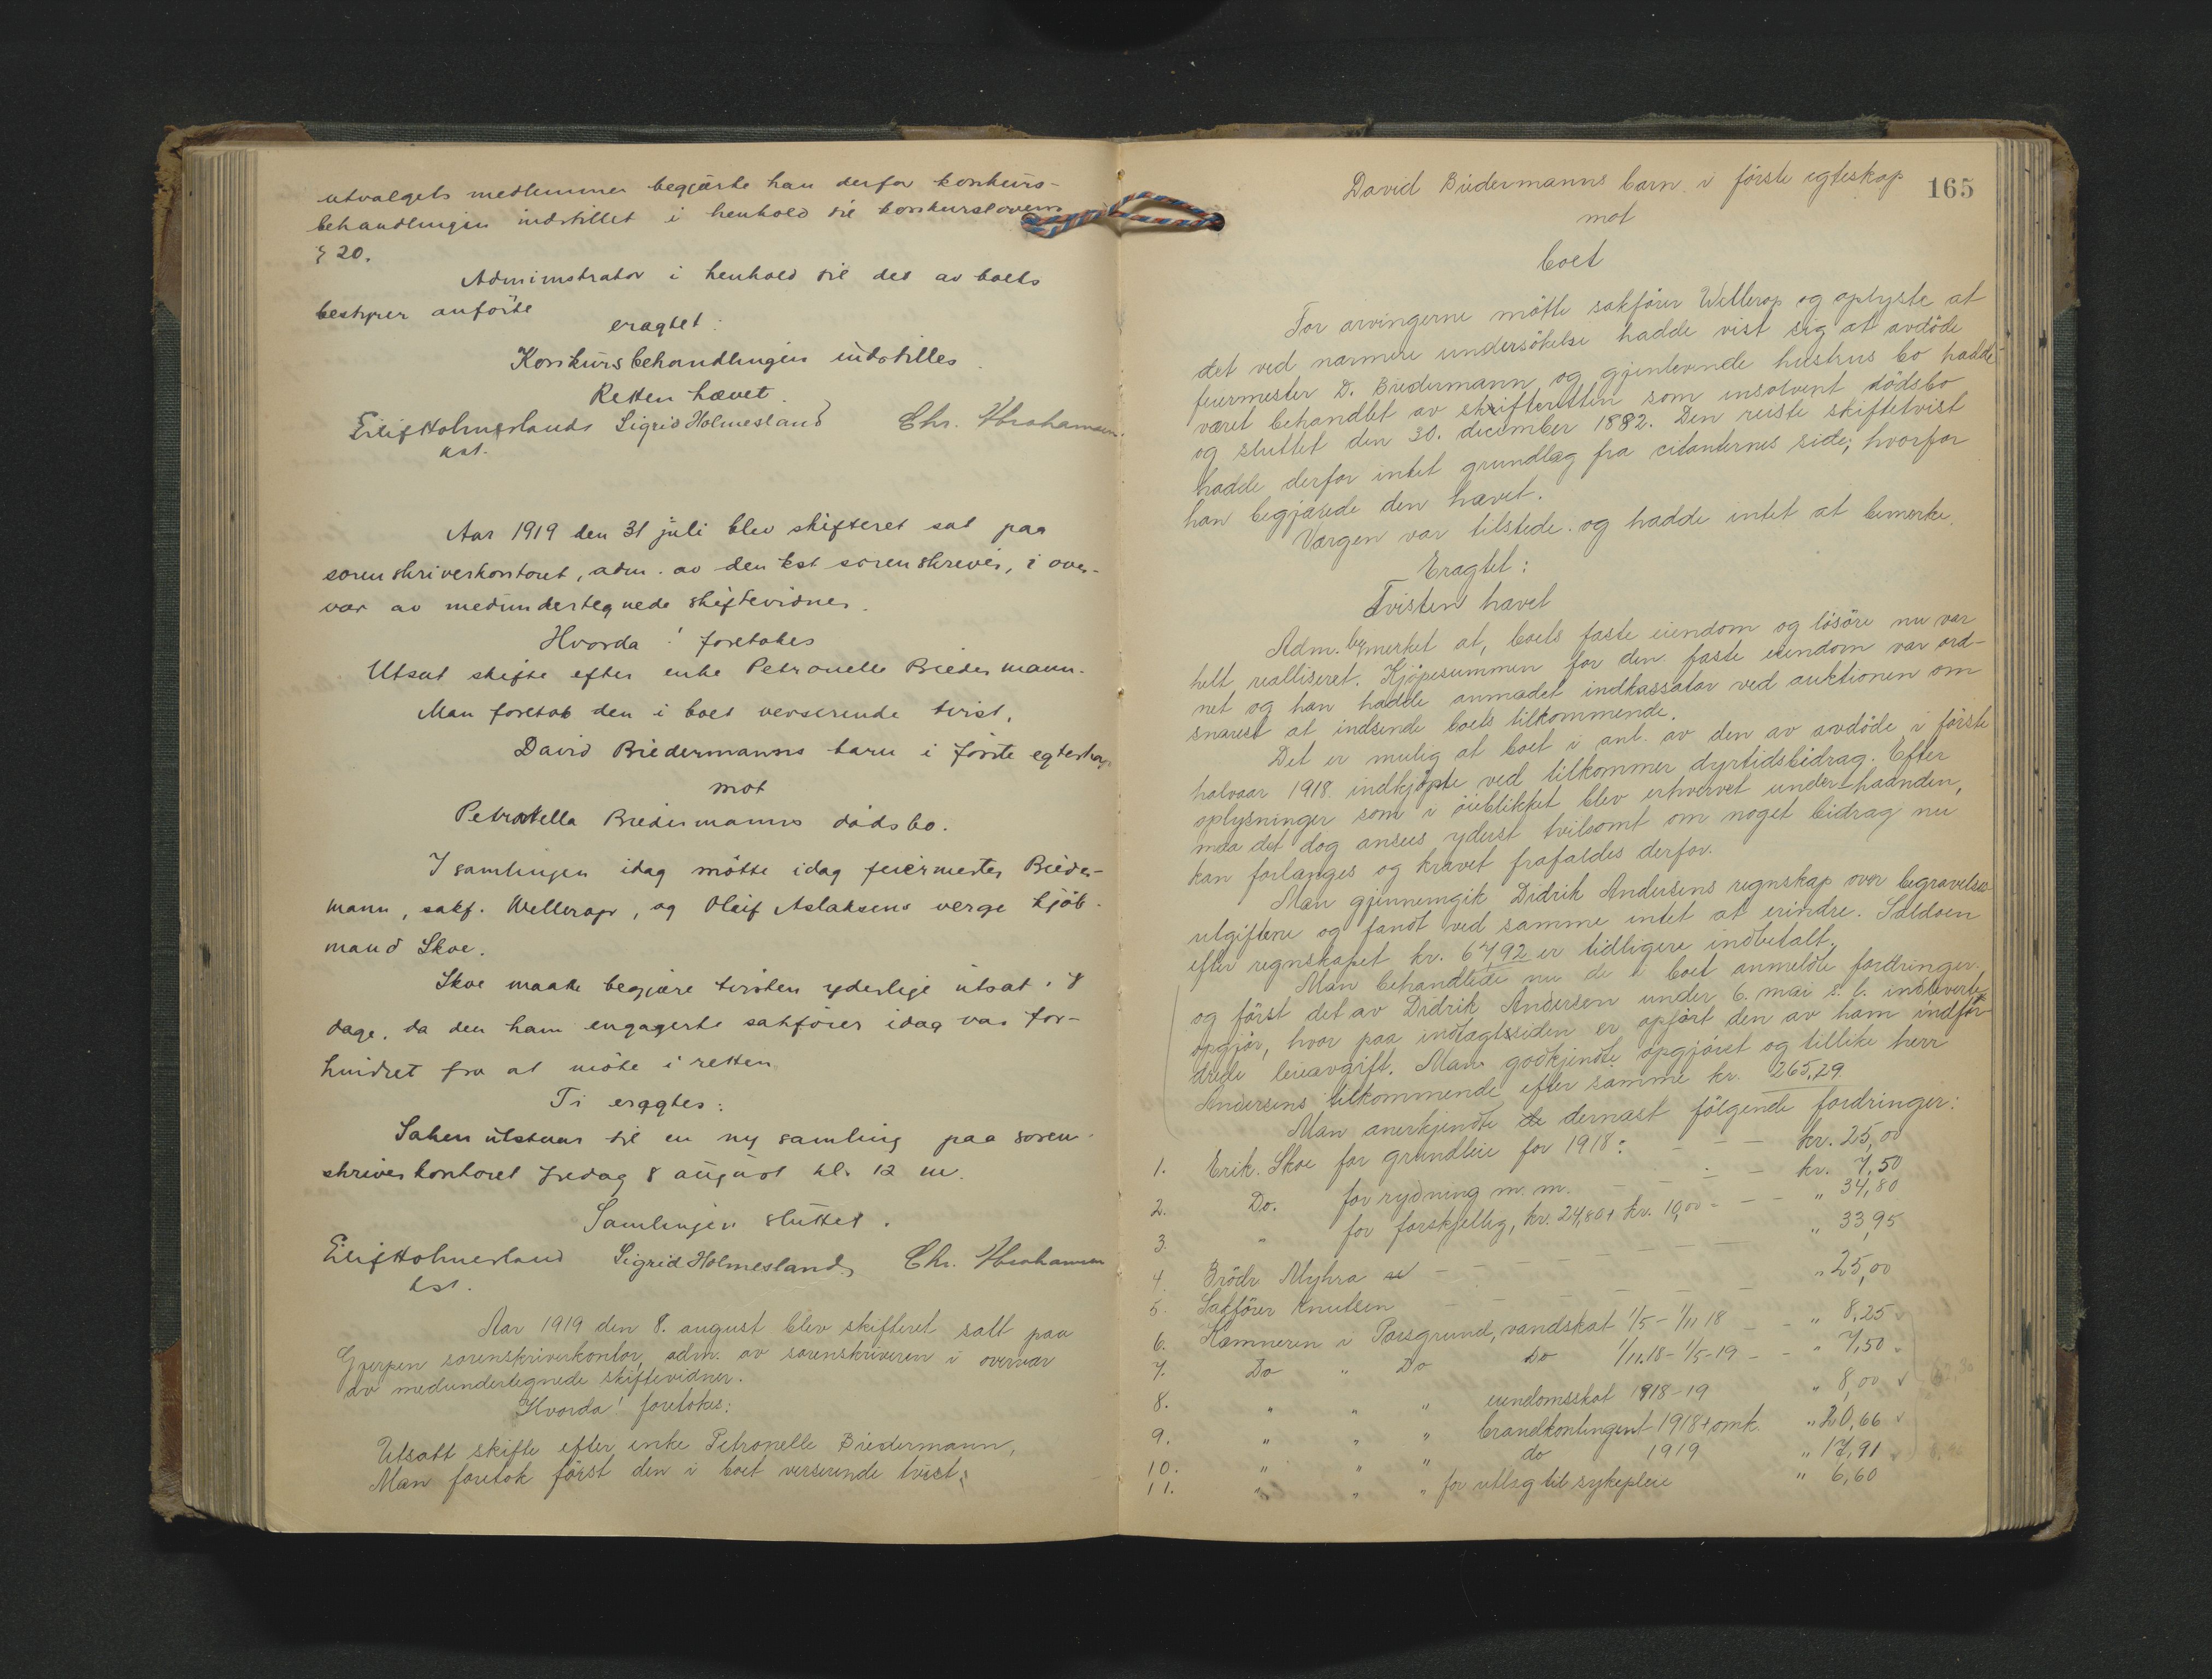 utvalgets medlemmer begjærte han derfor konkurs-
behandlingen indstillet i henhold til konkurslovens
§ 20.
Administrator i henhold til det av boets
bestyrer anförte
eragtet:
Konkursbehandlingen indstilles.
Retten hævet.
Eilif Holmesland Sigrid Holmesland Chr. Abrahamsen.
kst.
Aar 1919 den 31 juli blev skifteret sat paa
sorenskriverkontoret, adm. av den kst sorenskriver, i over-
vær av medundertegnede skiftevidner.
Hvorda! foretokes
Utsat skifte efter enke Petronelle Biedermann.
Man foretok den i boet verserende tvist,
David Biedermanns barn i förste egteskap
mot
Petronella Biedermanns dödsbo.
I samlingen idag mötte idag feiermester Bieder-
mann, sakf. Wellerop, og Oleif Aslaksens verge kjöb-
mand Skoe.
Skoe maatte begjære tvisten yderlige utsat i 8
dage, da den ham engagerte sakförer idag var for-
hindret fra at möte i retten.
Ti eragtes:
Saken utstaar til en ny samling paa soren-
skriverkontoret fredag 8 august kl. 12 m.
Samlingen sluttet.
Eilif Holmesland Sigrid Holmesland Chr. Abrahamsen
kst.
Aar 1919 den 8. august blev skifteret satt paa
Gjerpen sorenskriverkontor, adm. av sorenskriveren i overvær
av medundertegnede skiftevidner.
Hvorda! foretokes:
Utsatt skifte efter enke Petronelle Biedermann,
Man foretok först den i boet verserende tvist:
165
David Biedermanns barn i förste egteskap
mot
boet
For arvingerne mötte sakförer Wellerop og oplyste at
det ved nærmere undersökelse hadde vist sig at avdöde
feiermester D. Biedermann og gjenlevende hustrus bo hadde
været behandlet av skifteretten som insolvent dödsbo
og sluttet den 30. december 1882. Den reiste skiftetvist
hadde derfor intet grundlag fra citanternes side, hvorfor
han begjærede den hævet.
Værgen var tilstede og hadde intet at bemerke.
Eragtet:
Tvisten hævet
Adm. bemerket at, boets faste eiendom og lösöre nu var
helt realliseret. Kjöpesummen for den faste eiendom var ord-
net og han hadde anmodet indkassator ved auktionen om
snarest at indsende boets tilkommende.
Det er mulig at boet i anl. av den av avdöde i förste
halvaar 1918 indkjöpte ved tilkommer dyrtidsbidrag. Efter
oplysninger som i öieblikket blev erhvervet under haanden,
maa det dog ansees yderst tvilsomt om noget bidrag nu
kan forlanges og kravet frafaldes derfor.
Man gjennemgik Didrik Andersens regnskap over begravelses-
utgiftene og fandt ved samme intet at erindre. Saldoen
efter regnskapet kr. 67,92 er tidligere indbetalt.
Man behandlede nu de i boet anmeldte fordringer,
og först det av Didrik Andersen under 6. mai s. l. indleverte
opgjör, hvor paa indtægtssiden er opfört den av ham indfor-
drede leieavgift. Man godkjendte opgjöret og tillike herr
Andersens tilkommende efter samme kr. 265,29
Man anerkjendte de dernæst fölgende fordringer:
1. Erik Skoe for grundleie for 1918: - - - kr. 25,00
2. Do. for rydning m. m. - - - - kr. 7,50
3. " for forskjellig, kr. 24,80 + kr. 10,00 = - - " 34,80
4. Brödr Myhra - - - - - - " 33,95
5. Sakförer Knutsen - - - - - - " 25,00
6. Kæmneren i Porsgrund, vandskat 1/5 - 1/11 18 - - " 8,25
7. Do " Do Do 1/11.18 - 1/5-19 - - " 7,50
8. " " " eiendomsskat 1918-19 " 8,00
9. " " " brandkontingent 1918 + omk. " 20,66
10. " " " do 1919 " 17,91
11. " " " for utlæg til sykepleie " 6,60